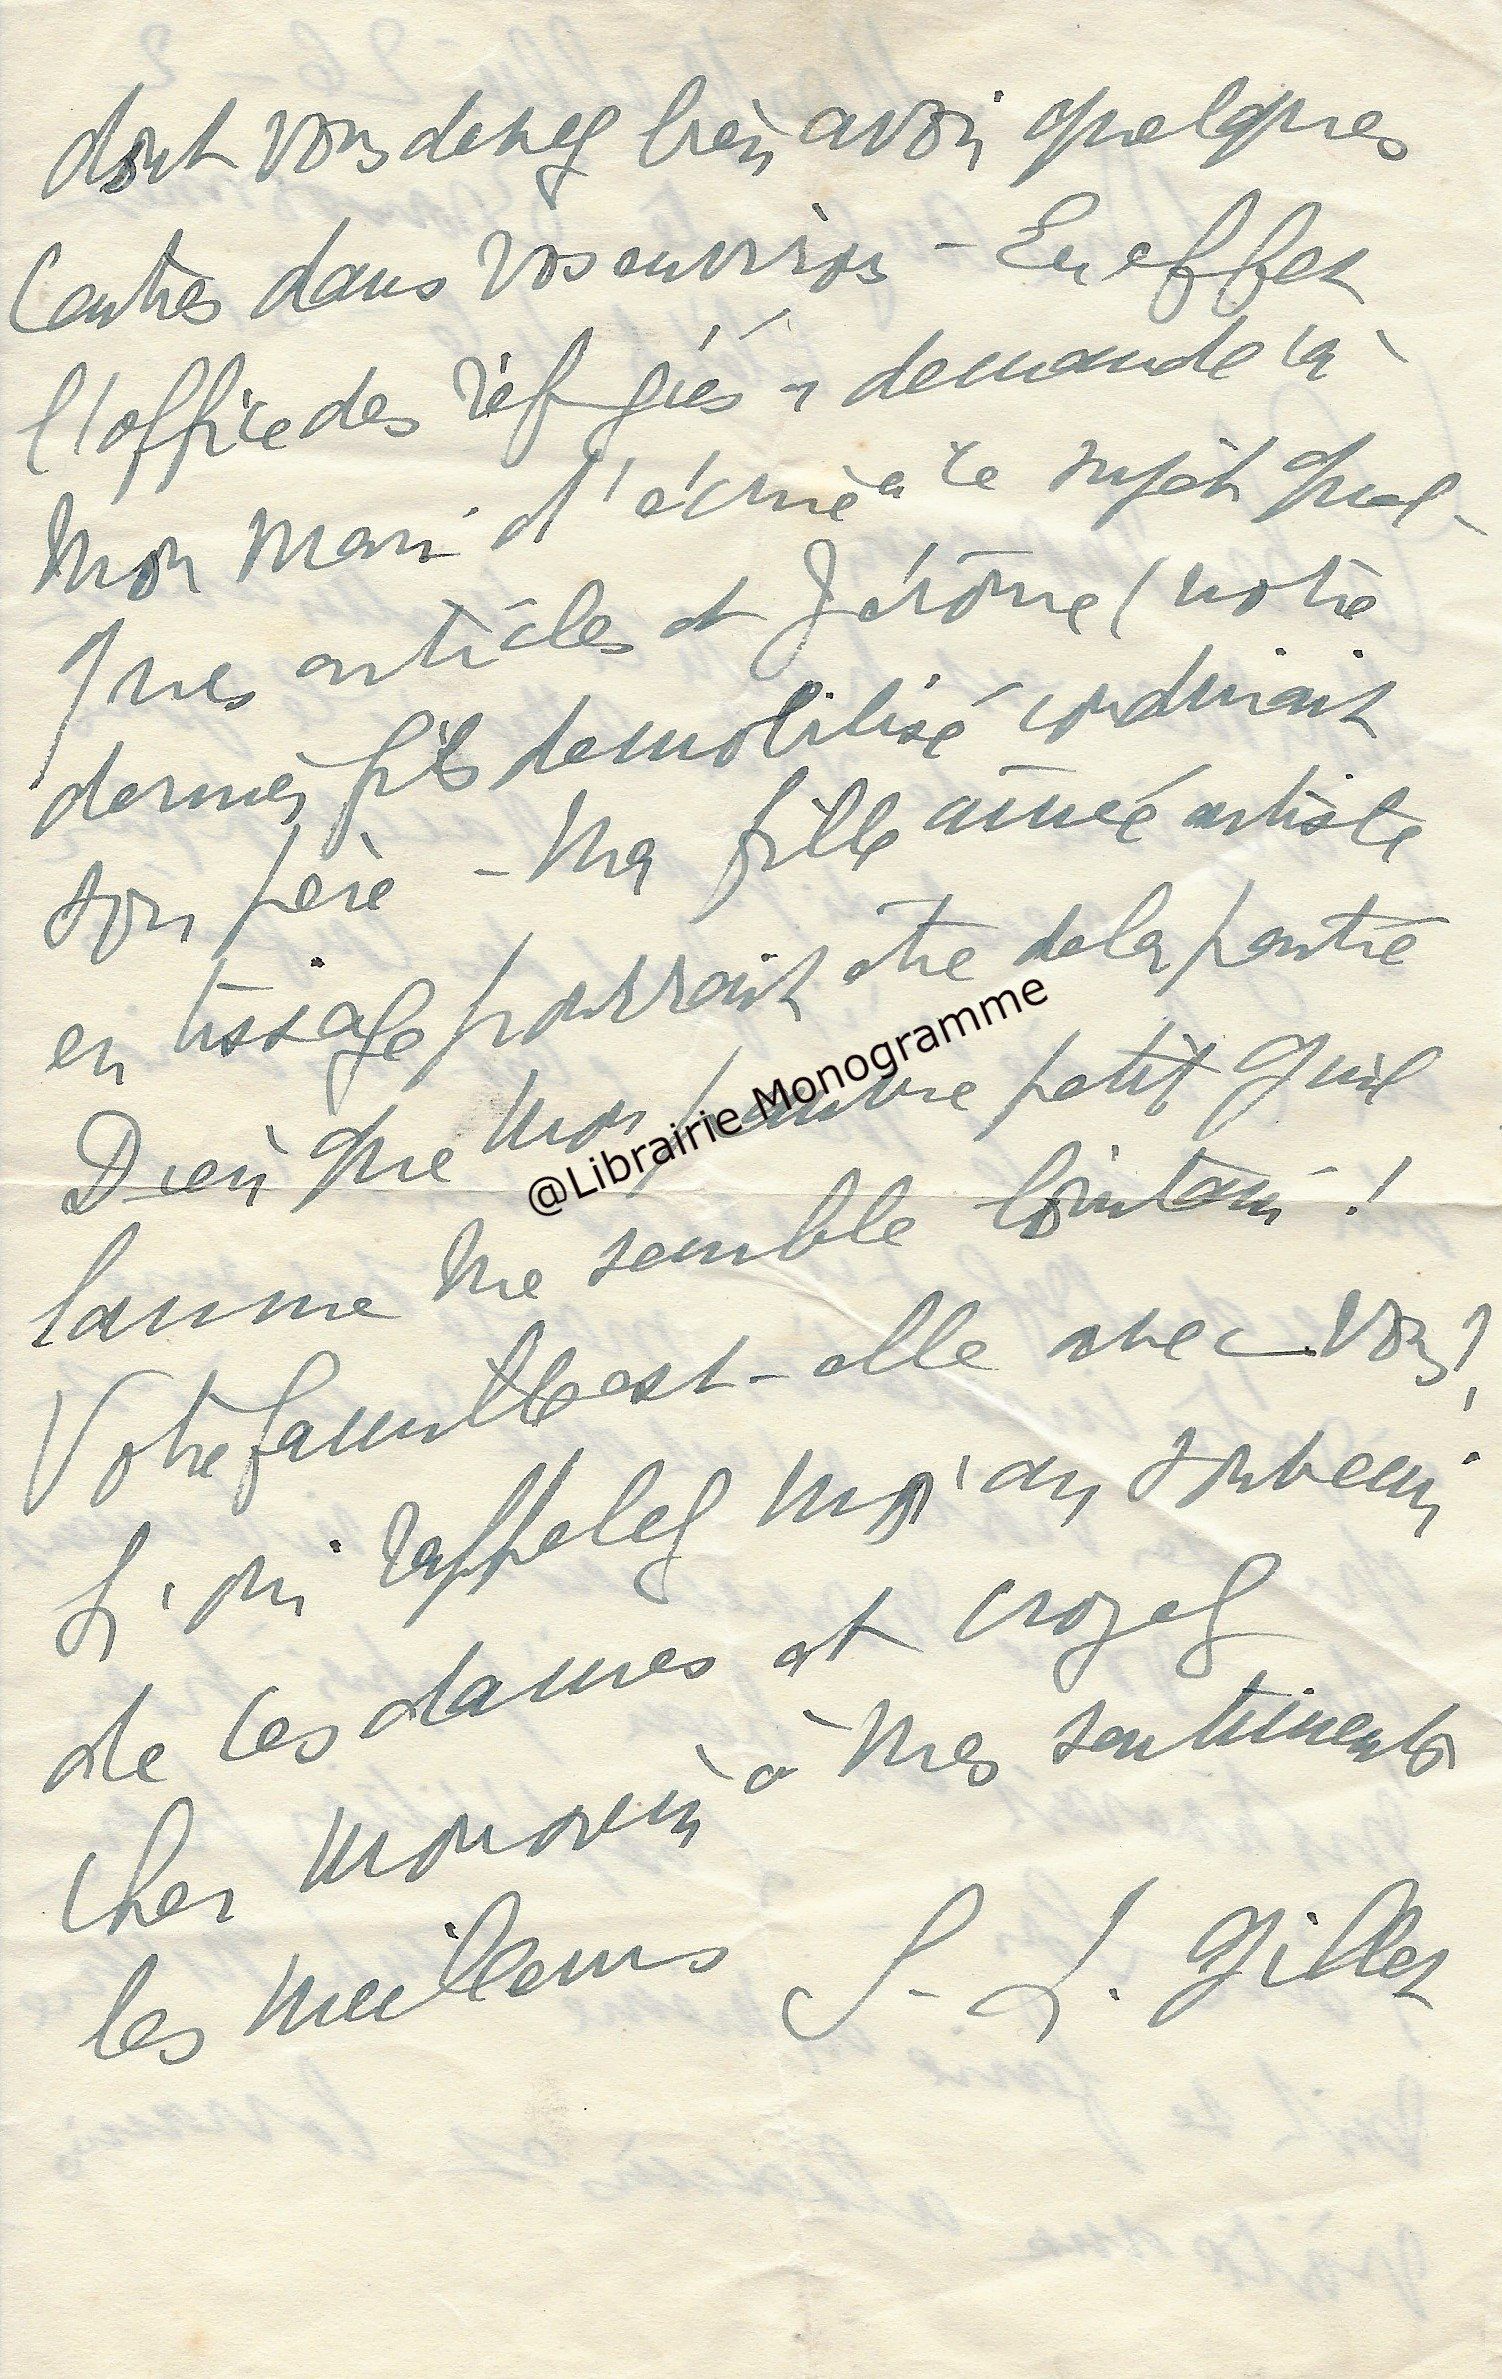 dont vous devez bien avoir quelques
Centres dans vos environs - En effet
l'office des réfugiés a demandé à
mon mari d'écrire à ce sujet quel-
ques articles et Jérôme (notre
dernier fils demobilisé conduirait
son père - Ma fille ainée artiste
en tissage pourrait être de la partie
Dieu que mon pauvre petit Guil
laume me semble lointain !
Votre famille est-elle avec vous ?
Si oui rappelez moi au souvenir
de ces dames et croyez
cher monsieur à mes sentiments
les meilleurs S. L. Gillet
@Librairie Monogramme